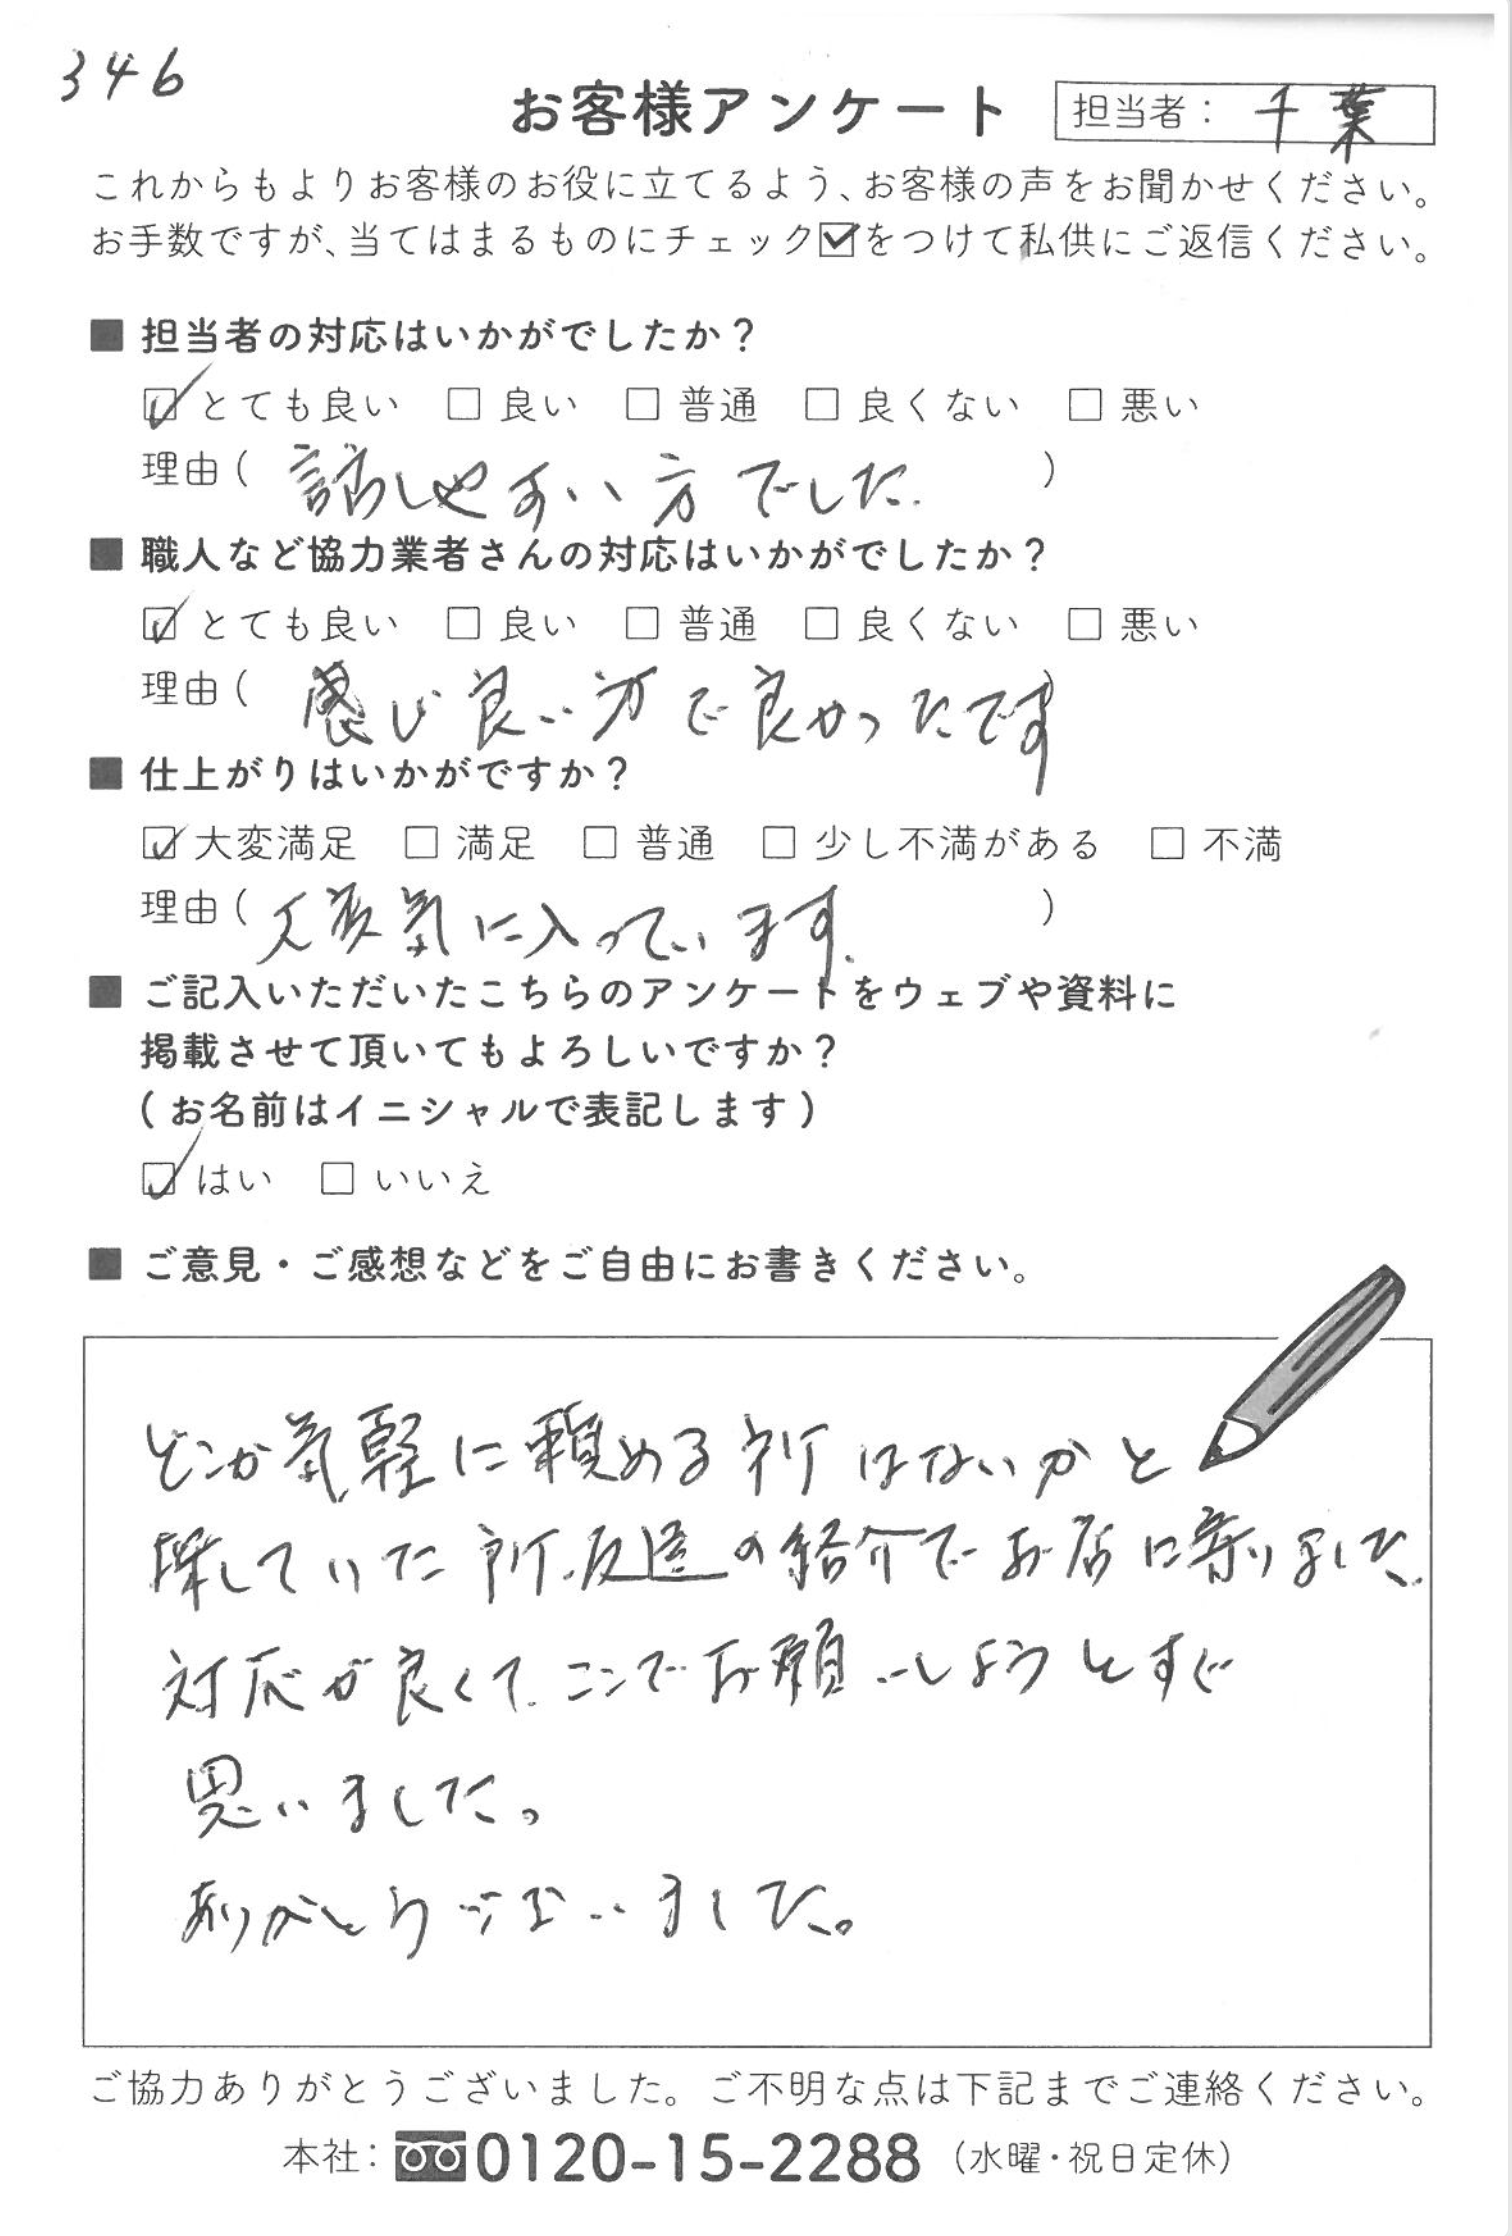 346
お客様アンケート 担当者： 千葉
これからもよりお客様のお役に立てるよう、お客様の声をお聞かせください。
お手数ですが、当てはまるものにチェック☑をつけて私供にご返信ください。
■ 担当者の対応はいかがでしたか？
☑ とても良い □ 良い □ 普通 □ 良くない □ 悪い
理由（ 話しやすい方でした. ）
■ 職人など協力業者さんの対応はいかがでしたか？
☑ とても良い □ 良い □ 普通 □ 良くない □ 悪い
理由（ 感じ良い方で良かったです ）
■ 仕上がりはいかがですか？
☑ 大変満足 □ 満足 □ 普通 □ 少し不満がある □ 不満
理由（ 大変気に入っています. ）
■ ご記入いただいたこちらのアンケートをウェブや資料に
掲載させて頂いてもよろしいですか？
（お名前はイニシャルで表記します）
☑ はい □ いいえ
■ ご意見・ご感想などをご自由にお書きください。
どこか気軽に頼める所はないかと
探していた所、友達の紹介でお店に寄りました.
対応が良くて、ここでお願いしようとすぐ
思いました。
ありがとうございました。
ご協力ありがとうございました。ご不明な点は下記までご連絡ください。
本社： 0120-15-2288 （水曜・祝日定休）